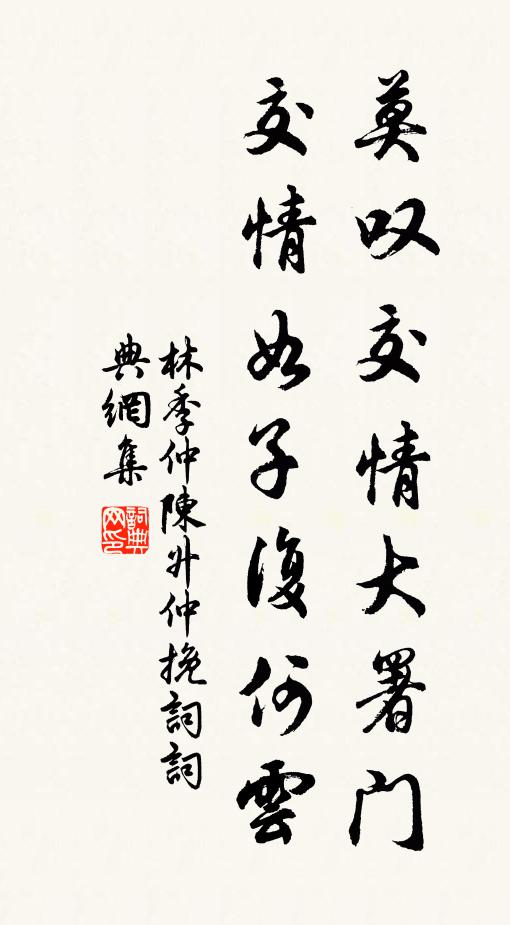 莫叹交情大署门
交情如子復何雲
林季仲陳升仲挽詞詞
典網集
詞典網印